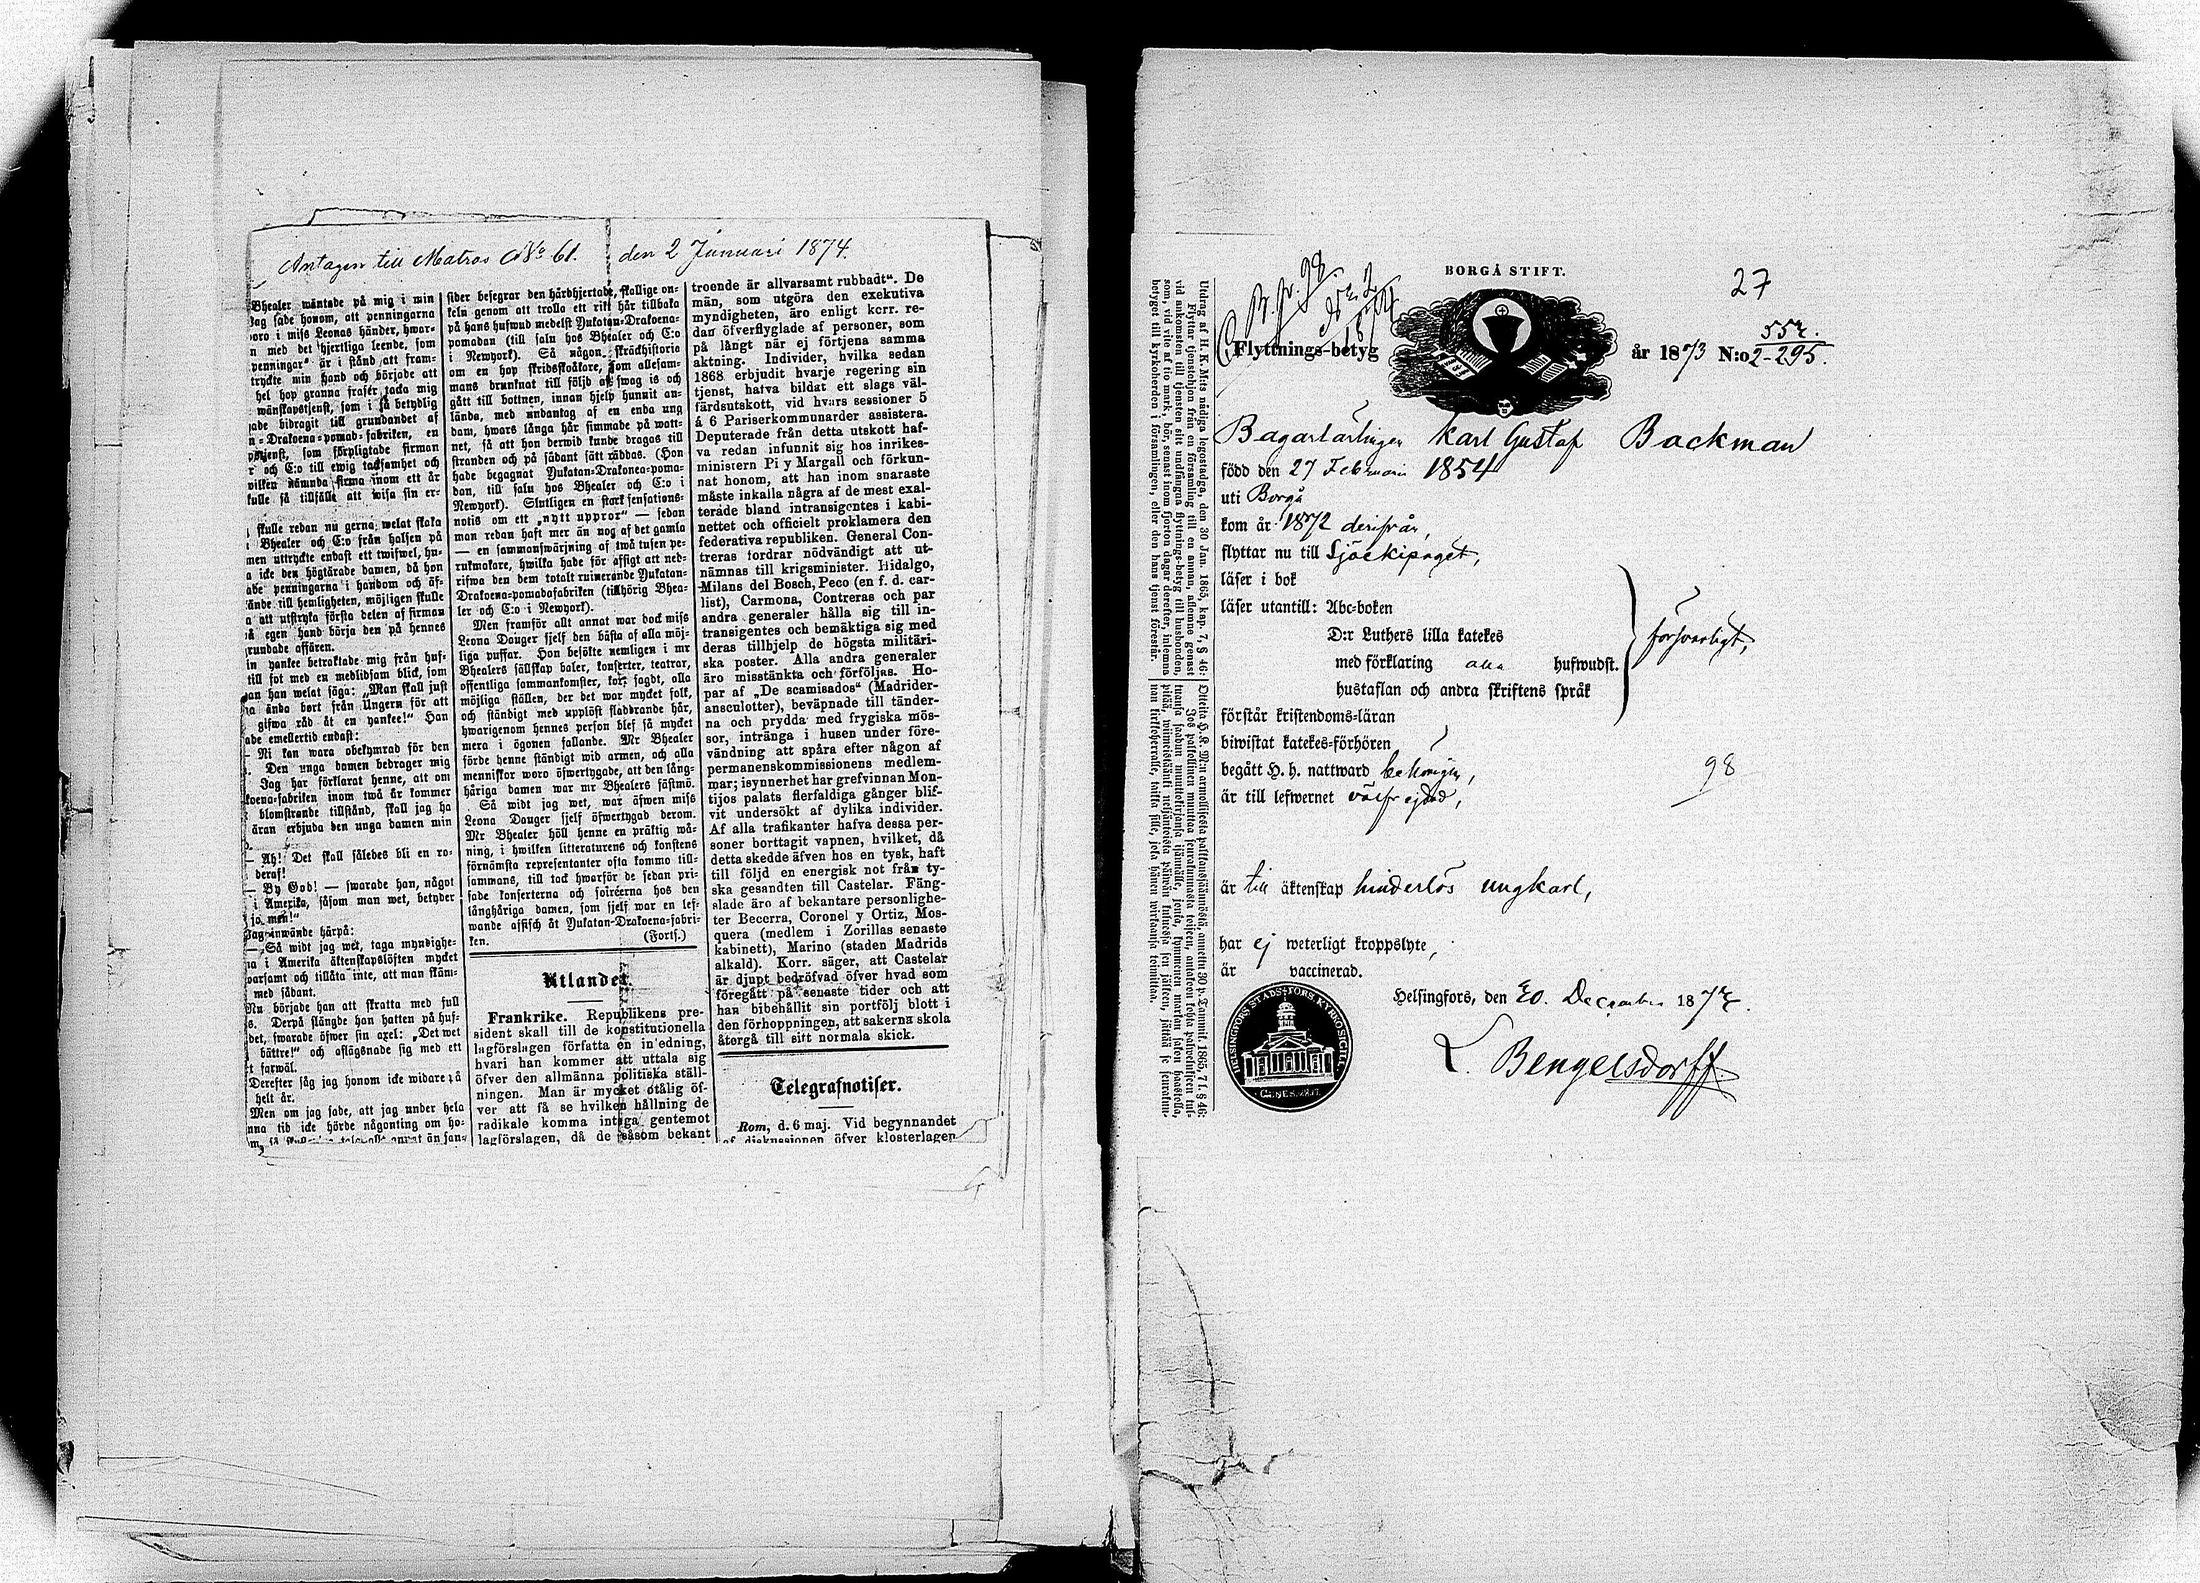 Antagen till Matros No 61. den 2 Januari 1874.
Bhealer wäntade på mig i min
Jag sade honom, att penningarna
woro i miss Leonas händer, hwar-
n med det hjertliga leende, som
penningar" är i stånd att fram-
tryckte min hand och började att
hel hop granna fraser tacka mig
wänskapstjenst, som i så betydlig
ade bidragit till grundandet af
n-Drakoena-pomad-fabriken, en
tjenst, som förpligtade firman
r och C:o till ewig tacksamhet och
wilken nämnda firma inom ett år
kulle få tillfälle att wisa sin er-
skulle redan nu gerna welat skaka
Bhealer och C:o från halsen på
men uttryckte endast ett twifwel, hu-
a icke den högtärade damen, då hon
ade penningarna i handom och öf-
ände till hemligheten, möjligen skulle
a att utstryka första delen af firman
å egen hand börja den på hennes
grundade affären.
in yankee betraktade mig från huf-
till fot med en medlidsam blick, som
an han welat säga: „Man skall just
a ända bort från Ungern för att
gifwa råd åt en yankee!" Han
ade emellertid endast:
— Ni kan wara obekymrad för den
. Den unga damen bedrager mig
Jag har förklarat henne, att om
koena-fabriken inom två år kommer
blomstrande tillstånd, skall jag ha
äran erbjuda den unga damen min
— Ah! Det skall således bli en ro-
deraf!
— By God! — swarade han, något
i Amerika, såsom man wet, betyder
jo, men!"
Jag inwände härpå:
— Så widt jag wet, taga myndighe-
na i Amerika äktenskapslöften mycket
warsamt och tillåta inte, att man skäm-
med sådant.
Nu började han att skratta med full
s. Derpå slängde han hatten på huf-
det, swarade öfwer sin axel: „Det wet
bättre!" och aflägsnade sig med ett
t farwäl.
Derefter såg jag honom icke widare på
helt år.
Men om jag sade, att jag under hela
nna tid icke hörde någonting om ho-
sider besegrar den hårdhjertade, skallige on-
keln genom att trolla ett rikt hår tillbaka
på hans hufwud medelst Yukatan-Drakoena-
pomadan (till salu hos Bhealer och C:o
i Newyork). Så någon skräckhistoria
om en hop skridskoåkare, som allesam-
mans drunknat till följd af swag is och
gått till bottnen, innan hjelp hunnit an-
lända, med undantag af en enda ung
dam, hwars långa hår simmade på watt-
net, så att hon derwid kunde dragas till
stranden och på sådant sätt räddas. (Hon
hade begagnat Yukatan-Drakonea-poma-
dan, till salu hos Bhealer och C:o i
Newyork). Slutligen en stark sensations-
notis om ett „nytt uppror" — sedan
man redan haft mer än nog af det gamla
— en sammanswärjning af två tusen pe-
rukmakare, hwilka hade för afsigt att ned-
rifwa den dem totalt ruinerande Yukatan-
Drakoena-pomadafabriken (tillhörig Bhea-
ler och C:o i Newyork).
Men framför allt annat war dock miss
Leona Dauger sjelf den bästa af alla möj-
liga puffar. Hon besökte nemligen i mr
Bhealers sällskap baler, konserter, teatrar,
offentliga sammankomster, kort sagdt, alla
möjliga ställen, der det war mycket folk,
och ständigt med upplöst fladdrande hår,
hwarigenom hennes person blef så mycket
mera i ögonen fallande. Mr Bhealer
förde henne ständigt wid armen, och alla
menniskor woro öfwertygade, att den lång-
håriga damen war mr Bhealers fästmö.
Så widt jag wet, war äfwen miss
Leona Dauger sjelf öfwertygad derom.
Mr Bhealer höll henne en präktig wå-
ning, i hwilken litteraturens och konstens
förnämsta representanter ofta kommo till-
sammans, till tack hwarför de sedan pri-
sade konserterna och soiréerna hos den
långhåriga damen, som sjelf war en lef-
wande affisch åt Yukatan-Drakoena-fabri-
ken. (Forts.)
Utlandet.
Frankrike. Republikens pre-
sident skall till de konstitutionella
lagförslagen författa en in'edning,
hvari han kommer att uttala sig
öfver den allmänna politiska ställ-
ningen. Man är mycket otålig öf-
ver att få se hvilken hållning de
radikale komma intaga gentemot
lagförslagen, då de såsom bekant
troende är allvarsamt rubbadt". De
män, som utgöra den exekutiva
myndigheten, äro enligt korr. re-
dan öfverflyglade af personer, som
på långt när ej förtjena samma
aktning. Individer, hvilka sedan
1868 erbjudit hvarje regering sin
tjenst, hafva bildat ett slags väl-
färdsutskott, vid hvars sessioner 5
à 6 Pariserkommunarder assistera-
Deputerade från detta utskott haf-
va redan infunnit sig hos inrikes-
ministern Pi y Margall och förkun-
nat honom, att han inom snaraste
måste inkalla några af de mest exal-
terade bland intransigentes i kabi-
nettet och officielt proklamera den
federativa republiken. General Con-
treras fordrar nödvändigt att ut-
nämnas till krigsminister. Hidalgo,
Milans del Bosch, Peco (en f. d. car-
list), Carmona, Contreras och par
andra generaler hålla sig till in-
transigentes och bemäktiga sig med
deras tillhjelp de högsta militäri-
ska poster. Alla andra generaler
äro misstänkta och förföljas. Ho-
par af „De scamisados" (Madrider-
ansculotter), beväpnade till tänder-
na och prydda med frygiska mös-
sor, intränga i husen under före-
vändning att spåra efter någon af
permanenskommissionens medlem-
mar; isynnerhet har grefvinnan Mon-
tijos palats flerfaldiga gånger blif-
vit undersökt af dylika individer.
Af alla trafikanter hafva dessa per-
soner borttagit vapnen, hvilket, då
detta skedde äfven hos en tysk, haft
till följd en energisk not från ty-
ska gesandten till Castelar. Fäng-
slade äro af bekantare personlighe-
ter Becerra, Coronel y Ortiz, Mos-
quera (medlem i Zorillas senaste
kabinett), Marino (staden Madrids
alkald). Korr. säger, att Castelar
är djupt bedröfvad öfver hvad som
föregått på senaste tider och att
han bibehållit sin portfölj blott i
den förhoppningen, att sakerna skola
återgå till sitt normala skick.
Telegrafnotiser.
Rom, d. 6 maj. Vid begynnandet
af diskussionen öfver klosterlagen
Utdrag af H. K. Mits nådiga legostadga, den 30 Jan. 1865, kap. 7, § 46:
Flyttar tjenstehjon från en församling till en annan, aflemne genast
vid ankomsten till tjensten sitt undfångna flyttnings-betyg till husbonden,
som, vid vite af tio mark, bör, senast inom fjorton dagar derefter, inlemna
betyget till kyrkoherden i församlingen, eller den hans tjenst förestår.
BORGÅ STIFT.
27
Flyttnings-betyg år 1873 N:o 2-295.
Bagarlärlingen Karl Gustaf Backman
född den 27 Februari 1854
uti Borgå
kom år 1872 derifrån,
flyttar nu till Sjöekipaget,
läser i bok
läser utantill: Abc-boken
D:r Luthers lilla katekes
med förklaring alla hufwudst. försvarligt,
hustaflan och andra skriftens språk
förstår kristendoms-läran
biwistat katekes-förhören
begått H. h. nattward behörigen,
98
är till lefwernet välfrejdad,
är till äktenskap hinderlös ungkarl,
har ej weterligt kroppslyte,
är vaccinerad.
Helsingfors, den 20. December 187
HELSINGFORS STADSFÖRS. KYRKOSIGILL
L. Bengelsdorff.